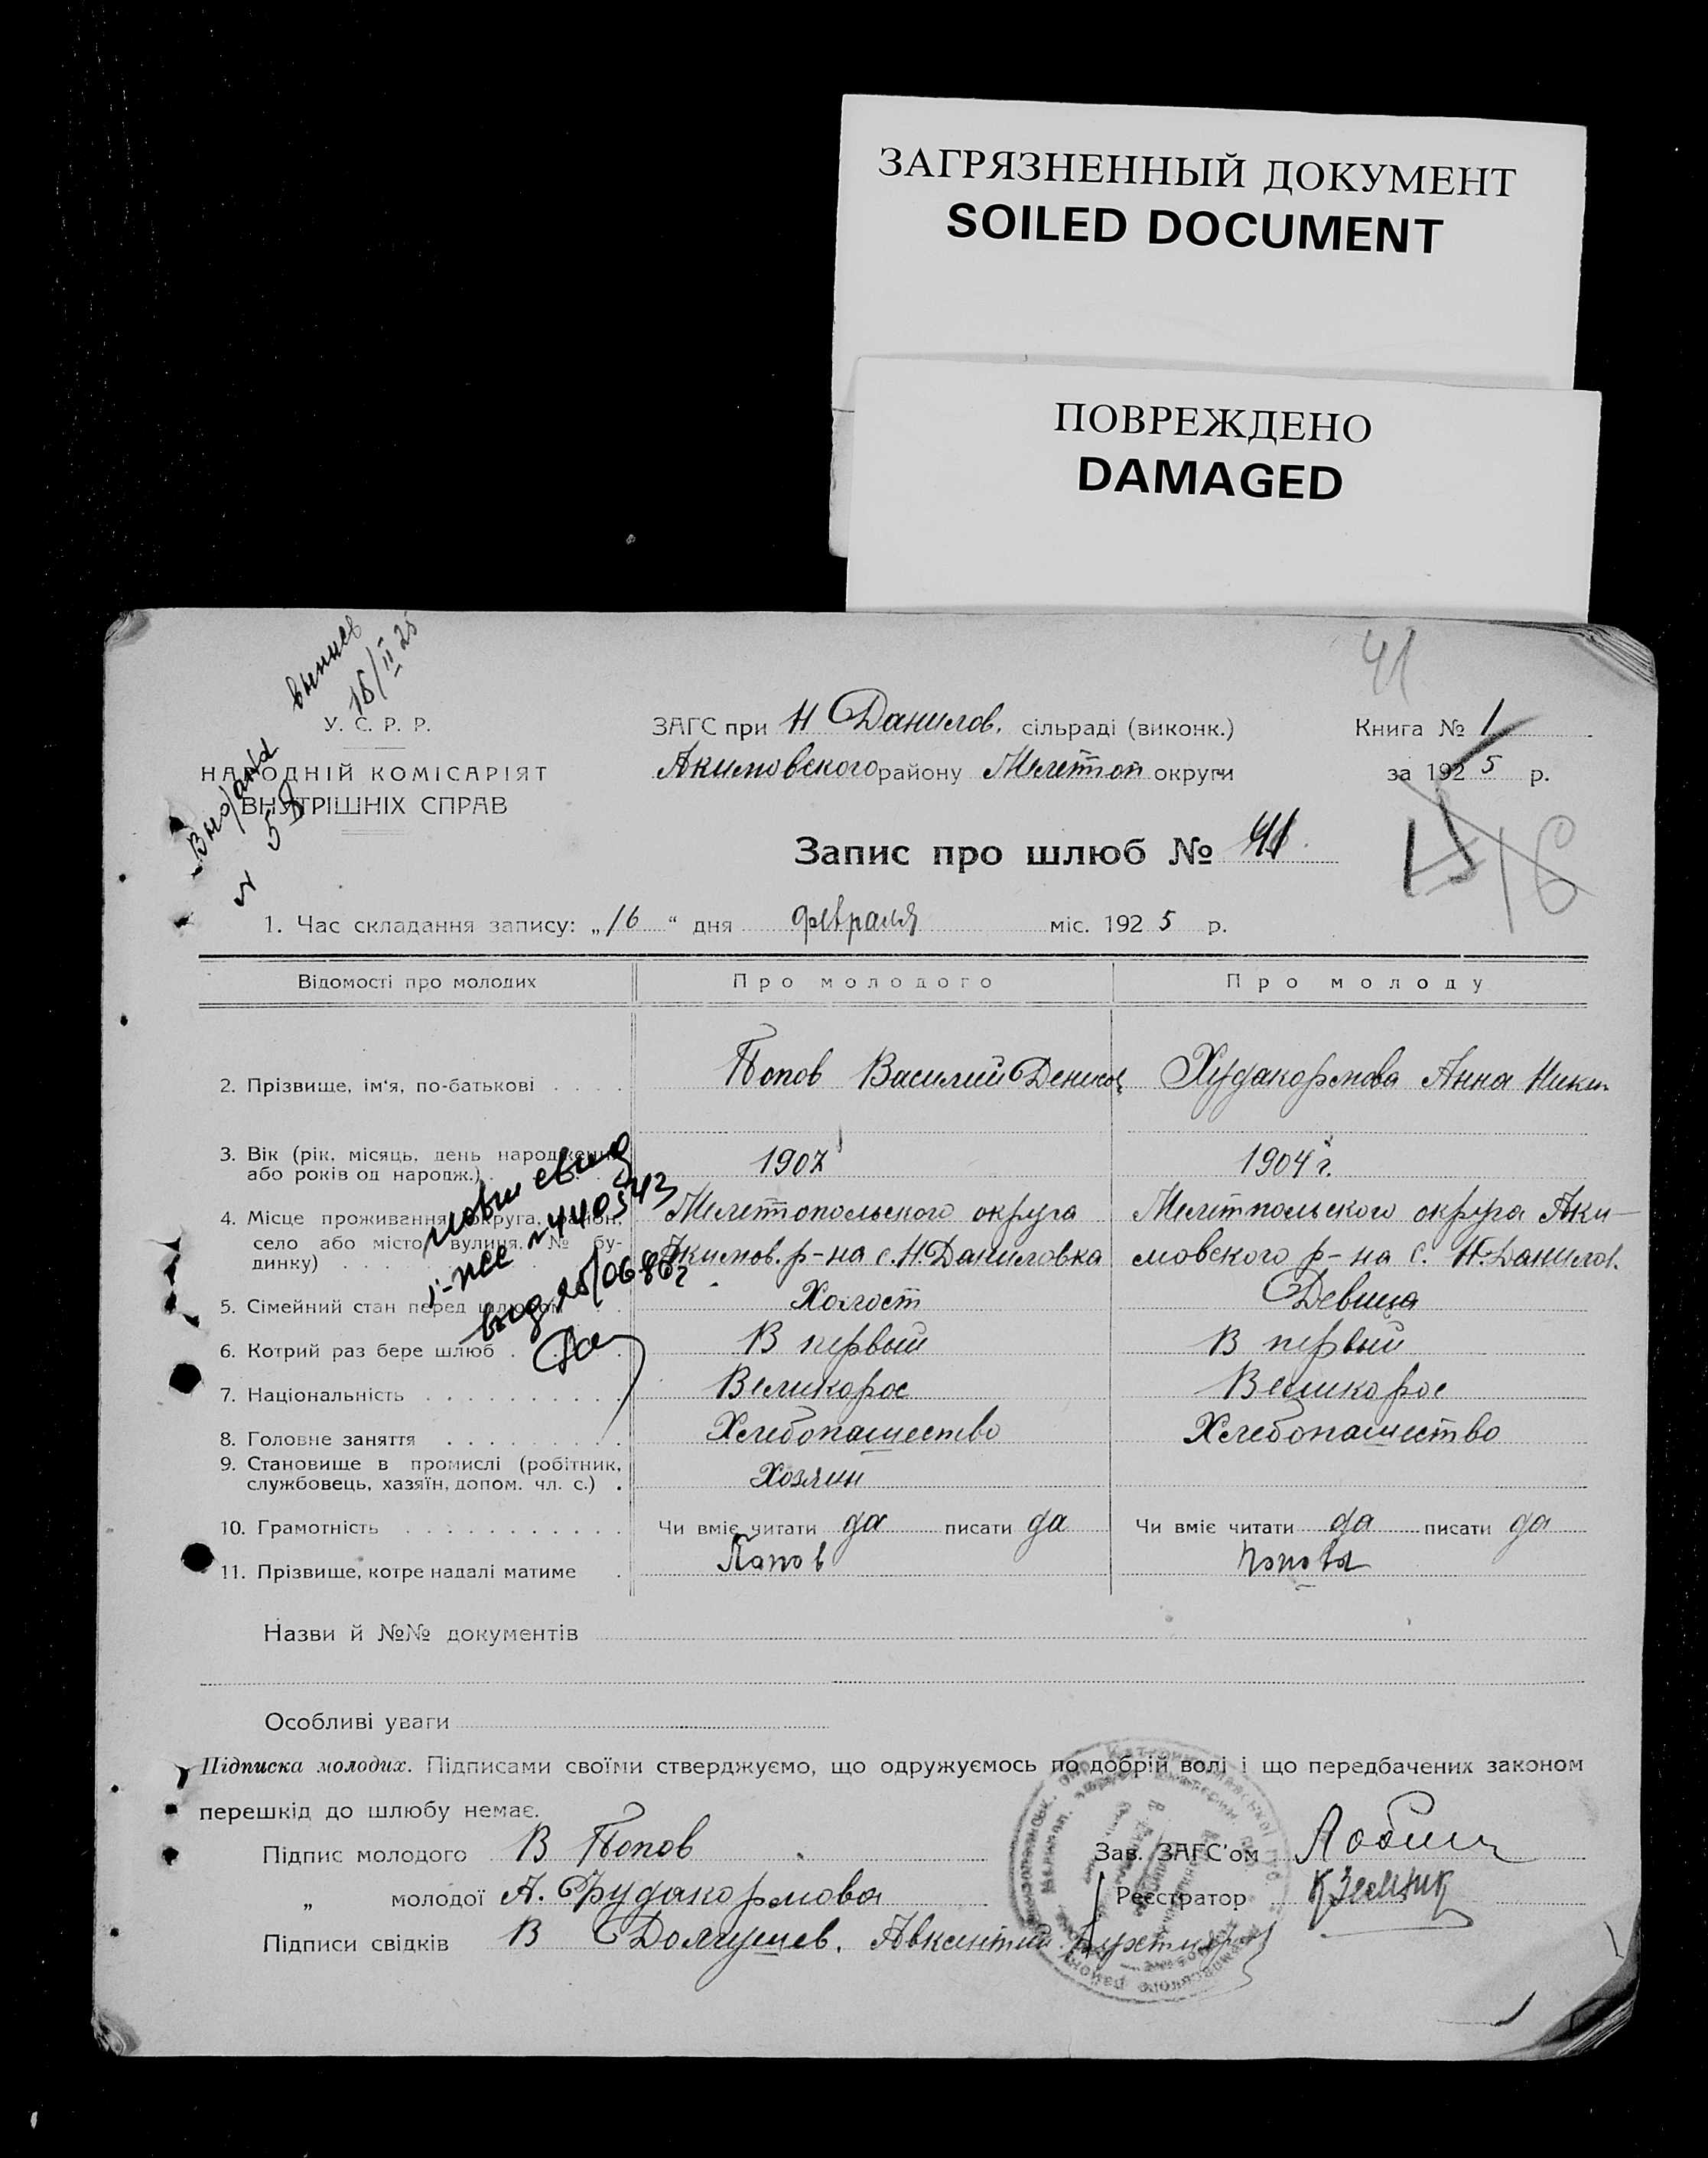 ЗАГРЯЗНЕННЫЙ ДОКУМЕНТ
SOILED DOCUMENT
ПОВРЕЖДЕНО
DAMAGED
41
выпись
16/II 25
У. С. Р. Р.
НАРОДНІЙ КОМІСАРІЯТ
ВНУТРІШНІХ СПРАВ
ЗАГС при Н Данилов. сільраді (виконк.)
Акимовского району Мелетоп округи
Книга № 1
за 1925 р.
Запис про шлюб № 41
16
1. Час складання запису: „16“ дня февраля міс. 1925 р.
Відомості про молодих Про молодого Про молоду
2. Прізвище, ім'я, по-батькові . . . . Попов Василий Денисов Худакормова Анна Никит
3. Вік (рік, місяць, день народження
або років од народж.) . 1907 1904 г.
4. Місце проживання (округа, район, Мелетопольского округа Мелетпольского округа Аки-
село або місто, вулиця, № бу-
динку) . . . Акимов. р-на с. Н. Даниловка мовского р-на с. Н. Данилов.
№ 440543
5. Сімейний стан перед шлюбом . . Холост Девица
6. Котрий раз бере шлюб . В первый В первый
7. Національність . . . . . . . . . Великорос Великорос
8. Головне заняття . . . . . . . . Хлебопашество Хлебопашество
9. Становище в промислі (робітник,
службовець, хазяїн, допом. чл. с.) . Хозяин
10. Грамотність . . . . . . . . . . . Чи вміє читати да писати да Чи вміє читати да писати да
11. Прізвище, котре надалі матиме . Папов Попова
Назви й №№ документів
Особливі уваги
Підписка молодих. Підписами своїми стверджуємо, що одружуємось по добрій волі і що передбачених законом
перешкід до шлюбу немає.
Підпис молодого В Попов Зав. ЗАГС'ом
„ молодої А. Худакормова Реєстратор
Підписи свідків В Долгушев, Авксентий